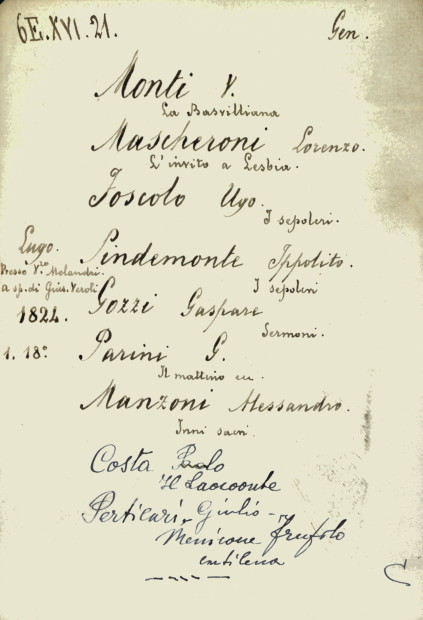 6E.XVI.21.
Gen.
Monti V.
La Basvilliana
Mascheroni Lorenzo.
L'invito a Lesbia.
Foscolo Ugo.
I sepolcri.
Lugo.
Presso V.ro Melandri.
a sp. di Gius. Veroli
1824.
1. 18°
Pindemonte Ippolito.
I sepolcri
Gozzi Gaspare
Sermoni.
Parini G.
Il mattino ecc.
Manzoni Alessandro.
Inni sacri.
Costa Paolo
Il Laocoonte
Perticari, Giulio -
Menicone Frufolo
cantilena